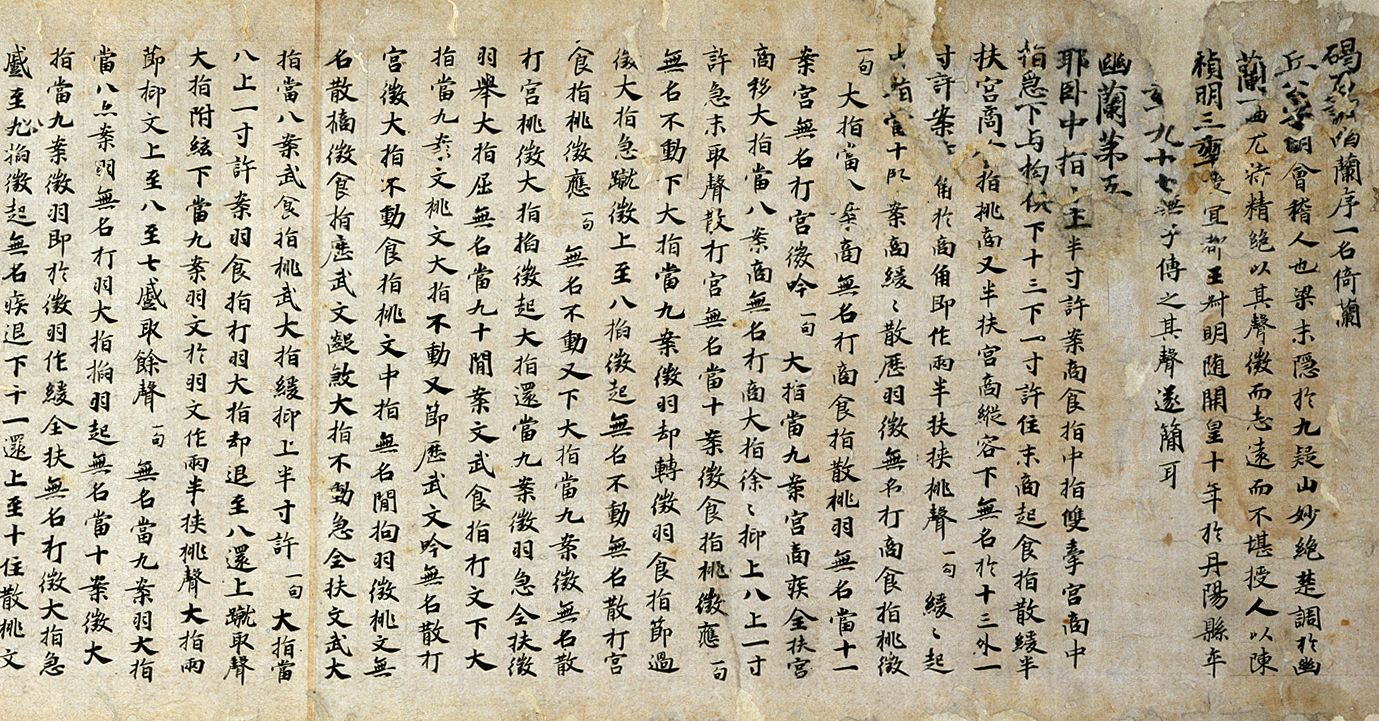 碣石調幽蘭序一名倚蘭
丘公字明會稽人也梁末隱於九疑山妙絕楚調於幽
蘭一曲尤特精絕以其聲微而志遠而不堪授人以陳
禎明三年授宜都王叔明随開皇十年於丹陽縣卒
九十七無子傳之其聲遂簡耳
幽蘭第五
耶卧中指半寸許案商食指中指雙牽宮商中
指急下与拘俱下十三下一寸許住末商起食指散緩半
扶宮商食指挑商又半扶宮商縱容下無名於十三外一
寸許案商角於商角即作兩半扶挾挑聲一句 緩々起
指當十案商緩々散歷羽徵無名打商食指挑徵
一句 大指當八案商無名打商食指散挑羽無名當十一
案宮無名打宮徵吟一句 大指當九案宮商疾全扶宮
商移大指當八案商無名打商大指徐々抑上八上一寸
許急末取聲散打宮無名當十案徵食指挑徵應一句
無名不動下大指當九案徵羽却轉徵羽食指節過
徵大指急蹴徵上至八掐徵起無名不動無名散打宮
食指挑徵應一句 無名不動又下大指當九案徵無名散
打宮桃徵大指掐徵起大指還當九案徵羽急全扶徵
羽舉大指屈無名當九十間案文武食指打文下大
指當九案文桃文大指不動又節歷武文吟無名散打
宮徵大指不動食指桃文中指無名間拘羽徵桃文無
名散擿徵食指歷武文齪煞大指不動急全扶文武大
指當八案武食指桃武大指緩抑上半寸許一句 大指當
八上一寸許案羽食指打羽大指却退至八還上蹴取聲
大指附絃下當九案羽文於羽文作兩半挾挑聲大指兩
節抑文上至八至七蹙取餘聲一句 無名當九案羽大指
當八案羽無名打羽大指掐羽起無名當十案徵大
指當九案徵羽即於徵羽作緩全扶無名打徵大指急
蹙至八掐徵起無名疾退下十一還上至十住散桃文